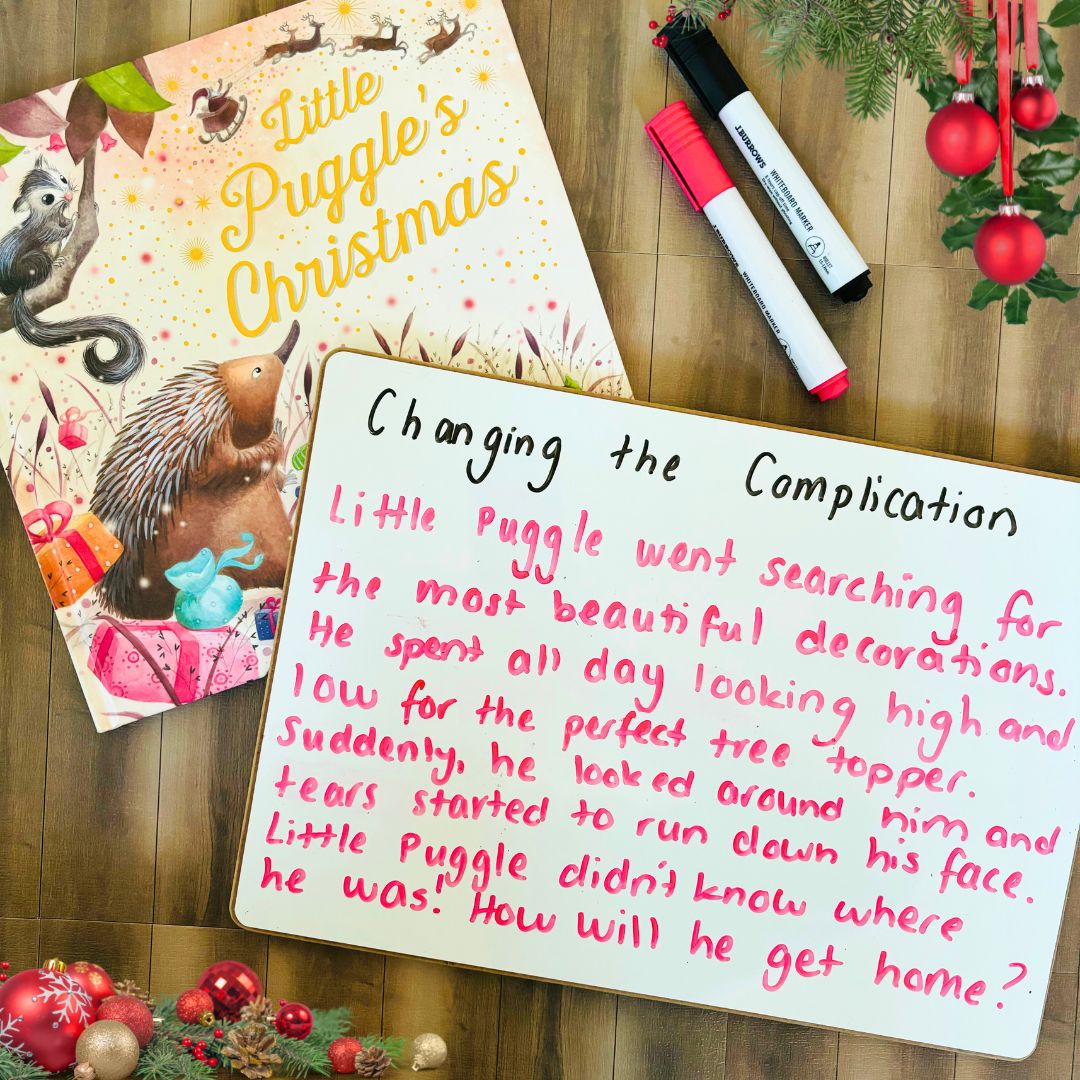 Little
Puggle's
Christmas
J.BURROWS
WHITEBOARD MARKER
WHITEBOARD MARKER
Changing the Complication
Little Puggle went searching for
the most beautiful decorations.
He spent all day looking high and
low for the perfect tree topper.
Suddenly, he looked around him and
tears started to run down his face.
Little Puggle didn't know where
he was! How will he get home?